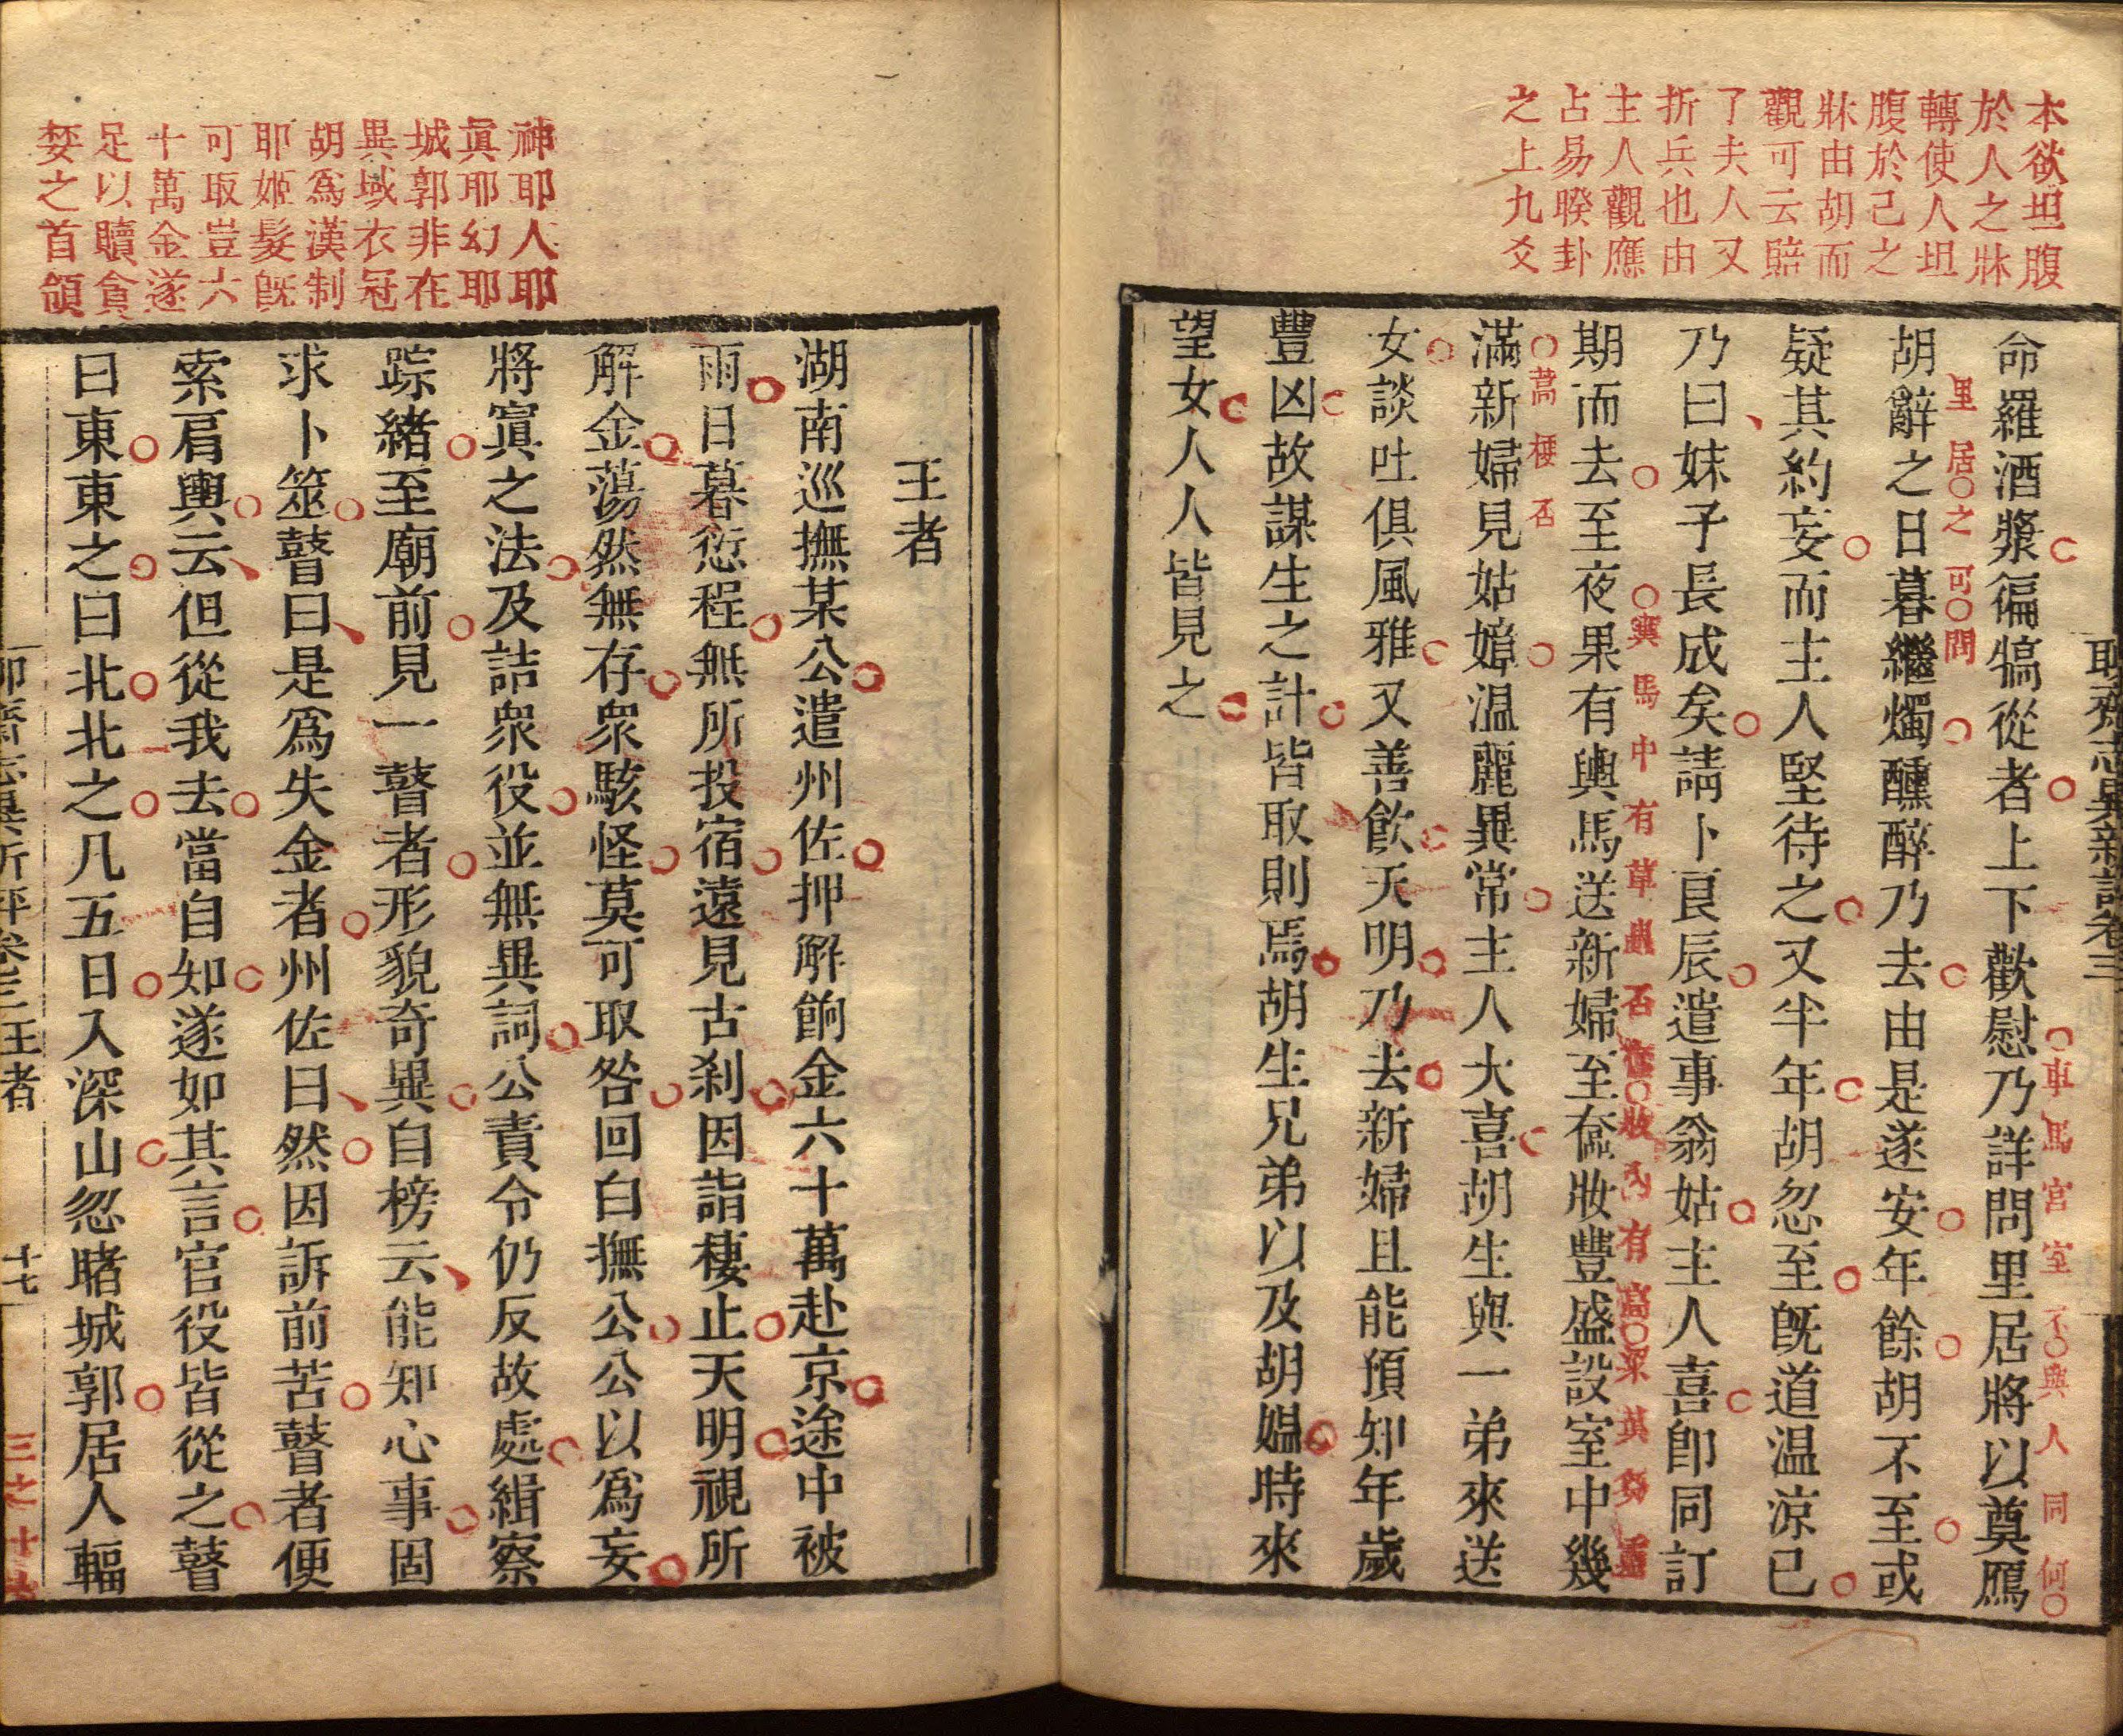 本欲坦腹
於人之牀
轉使人坦
腹於己之
牀由胡而
觀可云賠
了夫人又
折兵也由
主人觀應
占易睽卦
之上九爻
命羅酒漿徧犒從者上下歡慰乃詳問里居將以奠鴈
車馬宮室不與人同何
里居之可問
胡辭之日暮繼燭醺醉乃去由是遂安年餘胡不至或
疑其約妄而主人堅待之又半年胡忽至旣道温涼已
乃曰妹子長成矣請卜良辰遣事翁姑主人喜卽同訂
期而去至夜果有輿馬送新婦至奩妝豐盛設室中幾
輿馬中有草蟲否奩妝內有高粱葉
蒿梗否
滿新婦見姑嫜温麗異常主人大喜胡生與一弟來送
女談吐俱風雅又善飮天明乃去新婦且能預知年歲
豐凶故謀生之計皆取則焉胡生兄弟以及胡媪時來
望女人人皆見之
神耶人耶
眞耶幻耶
城郭非在
異域衣冠
胡爲漢制
耶姬髮旣
可取豈六
十萬金遂
足以贖貪
婪之首領
王者
湖南巡撫某公遣州佐押解餉金六十萬赴京途中被
雨日暮愆程無所投宿遠見古刹因詣棲止天明視所
解金蕩然無存衆駭怪莫可取咎回白撫公公以爲妄
將寘之法及詰衆役並無異詞公責令仍反故處緝察
踪緒至廟前見一瞽者形貌奇異自榜云能知心事因
求卜筮瞽曰是爲失金者州佐曰然因訴前苦瞽者便
索肩輿云但從我去當自知遂如其言官役皆從之瞽
曰東東之曰北北之凡五日入深山忽睹城郭居人輻
王者
十七